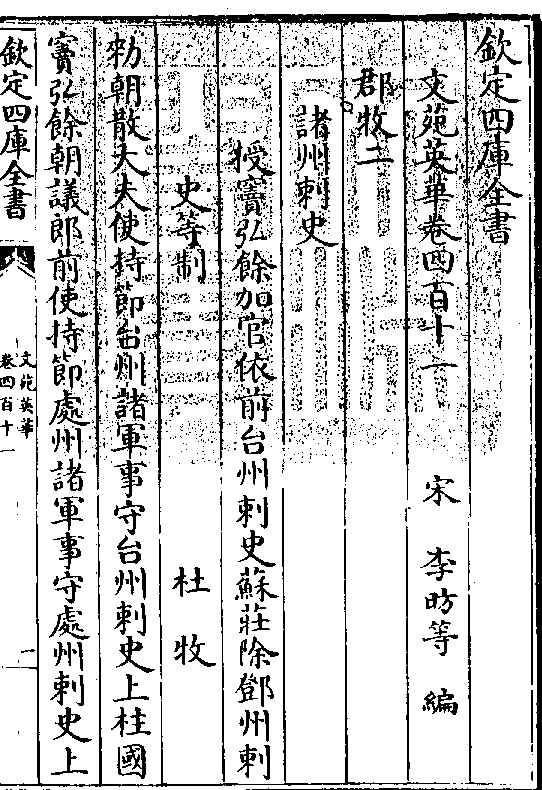 欽定四庫全書
文苑英華卷四百十一　宋　李昉等　編
郡牧二
諸州刺史
授竇弘餘加官依前台州刺史蘇莊除鄧州刺
史等制　杜牧
勑朝散大夫使持節台州諸軍事守台州刺史上柱國
竇弘餘朝議郎前使持節處州諸軍事守處州刺史上
欽定四庫全書
文苑英華
卷四百十一
一